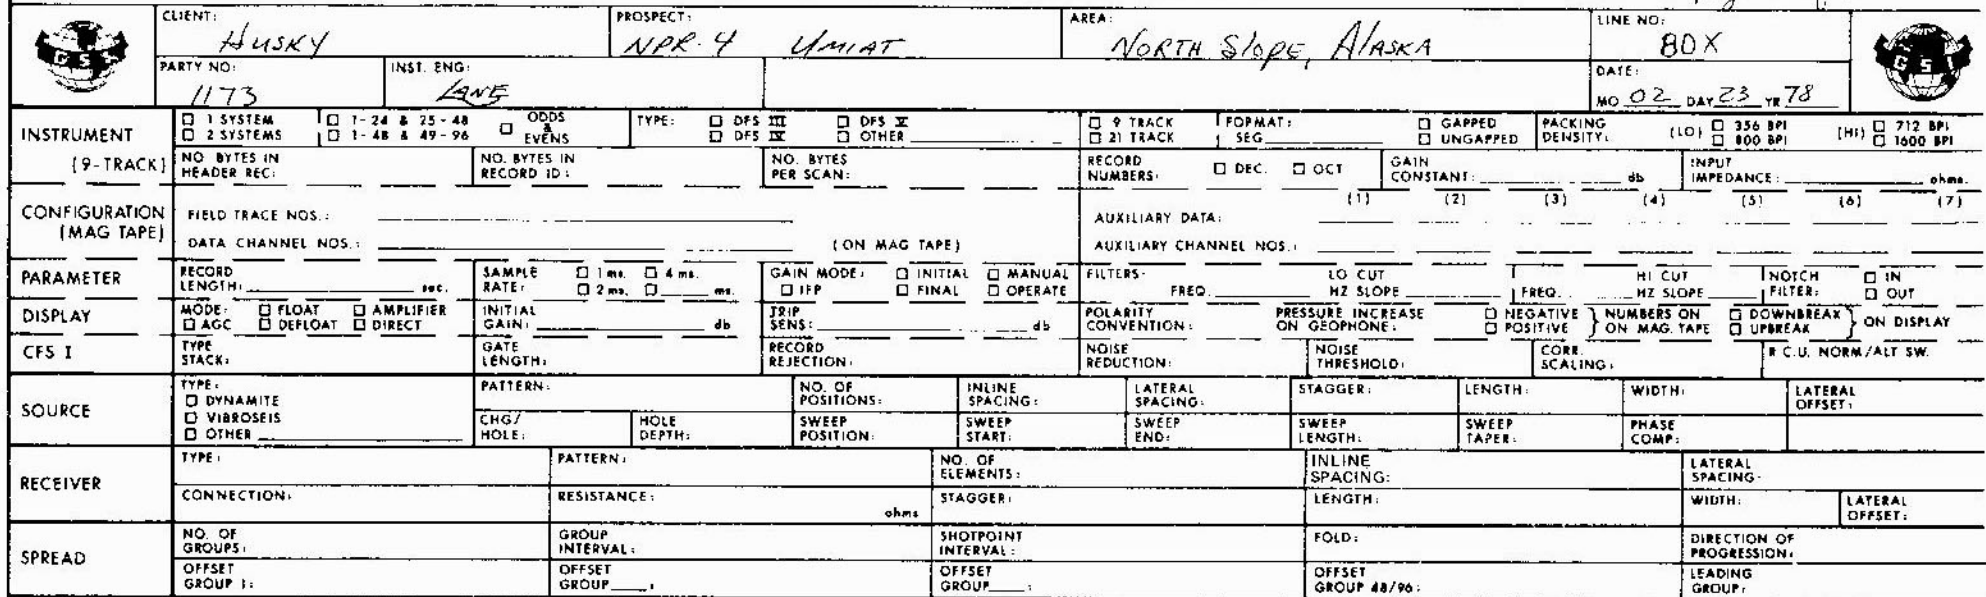 CLIENT: HUSKY PROSPECT: NPR-4 UMIAT AREA: NORTH SLOPE, ALASKA LINE NO: 80X
GSI GSI
PARTY NO: 1173 INST. ENG: LANE DATE: MO 02 DAY 23 YR 78
INSTRUMENT (9-TRACK)
□ 1 SYSTEM □ 1-24 & 25-48 □ ODDS & EVENS TYPE: □ DFS III □ DFS V □ 9 TRACK FORMAT: □ GAPPED PACKING DENSITY: (LO) □ 356 BPI (HI) □ 712 BPI
□ 2 SYSTEMS □ 1-48 & 49-96 □ DFS IV □ OTHER □ 21 TRACK SEG □ UNGAPPED □ 800 BPI □ 1600 BPI
NO. BYTES IN HEADER REC: NO. BYTES IN RECORD ID: NO. BYTES PER SCAN: RECORD NUMBERS: □ DEC. □ OCT GAIN CONSTANT: db INPUT IMPEDANCE: ohms.
CONFIGURATION (MAG TAPE)
(1) (2) (3) (4) (5) (6) (7)
FIELD TRACE NOS.: AUXILIARY DATA:
DATA CHANNEL NOS.: (ON MAG TAPE) AUXILIARY CHANNEL NOS.:
PARAMETER RECORD LENGTH: sec. SAMPLE RATE: □ 1 ms. □ 4 ms. □ 2 ms. □ ms. GAIN MODE: □ INITIAL □ MANUAL □ IFP □ FINAL □ OPERATE FILTERS: FREQ. LO CUT HZ SLOPE FREQ. HI CUT HZ SLOPE NOTCH FILTER: □ IN □ OUT
DISPLAY MODE: □ FLOAT □ AMPLIFIER □ AGC □ DEFLOAT □ DIRECT INITIAL GAIN: db TRIP SENS: db POLARITY CONVENTION: PRESSURE INCREASE ON GEOPHONE: □ NEGATIVE □ POSITIVE } NUMBERS ON MAG. TAPE □ DOWNBREAK □ UPBREAK } ON DISPLAY
CFS I TYPE STACK: GATE LENGTH: RECORD REJECTION: NOISE REDUCTION: NOISE THRESHOLD: CORR. SCALING: R.C.U. NORM/ALT SW.
SOURCE TYPE: □ DYNAMITE □ VIBROSEIS □ OTHER
PATTERN: NO. OF POSITIONS: INLINE SPACING: LATERAL SPACING: STAGGER: LENGTH: WIDTH: LATERAL OFFSET:
CHG/HOLE: HOLE DEPTH: SWEEP POSITION: SWEEP START: SWEEP END: SWEEP LENGTH: SWEEP TAPER: PHASE COMP:
RECEIVER TYPE: PATTERN: NO. OF ELEMENTS: INLINE SPACING: LATERAL SPACING:
CONNECTION: RESISTANCE: ohms STAGGER: LENGTH: WIDTH: LATERAL OFFSET:
SPREAD NO. OF GROUPS: GROUP INTERVAL: SHOTPOINT INTERVAL: FOLD: DIRECTION OF PROGRESSION:
OFFSET GROUP 1: OFFSET GROUP : OFFSET GROUP : OFFSET GROUP 48/96: LEADING GROUP: